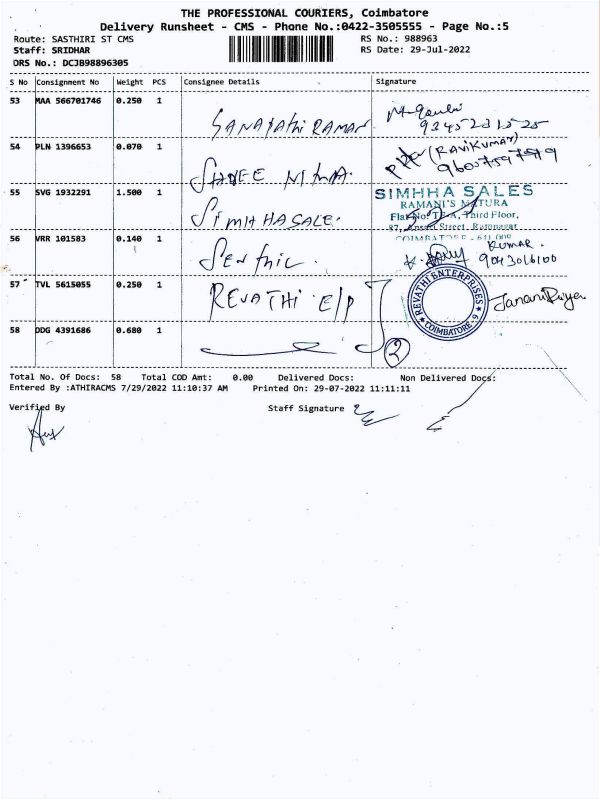 THE PROFESSIONAL COURIERS, Coimbatore
Delivery Runsheet - CMS - Phone No.:0422-3505555 - Page No.:5
Route: SASTHIRI ST CMS RS No.: 988963
Staff: SRIDHAR RS Date: 29-Jul-2022
DRS No.: DCJB98896305
S No Consignment No Weight PCS Consignee Details Signature
53 MAA 566701746 0.250 1
54 PLN 1396653 0.070 1 (RAVIKUMAR)
55 SVG 1932291 1.500 1
SIMHHA SALES
RAMANI'S MATURA
Third Floor,
Street, Ratnagar
56 VRR 101583 0.140 1 KUMAR.
9043016100
57 TVL 5615055 0.250 1 REVATHI E/P
REVATHI ENTERPRISES
COIMBATORE - 9
58 DDG 4391686 0.680 1
2
Total No. Of Docs: 58 Total COD Amt: 0.00 Delivered Docs: Non Delivered Docs:
Entered By :ATHIRACMS 7/29/2022 11:10:37 AM Printed On: 29-07-2022 11:11:11
Verified By Staff Signature